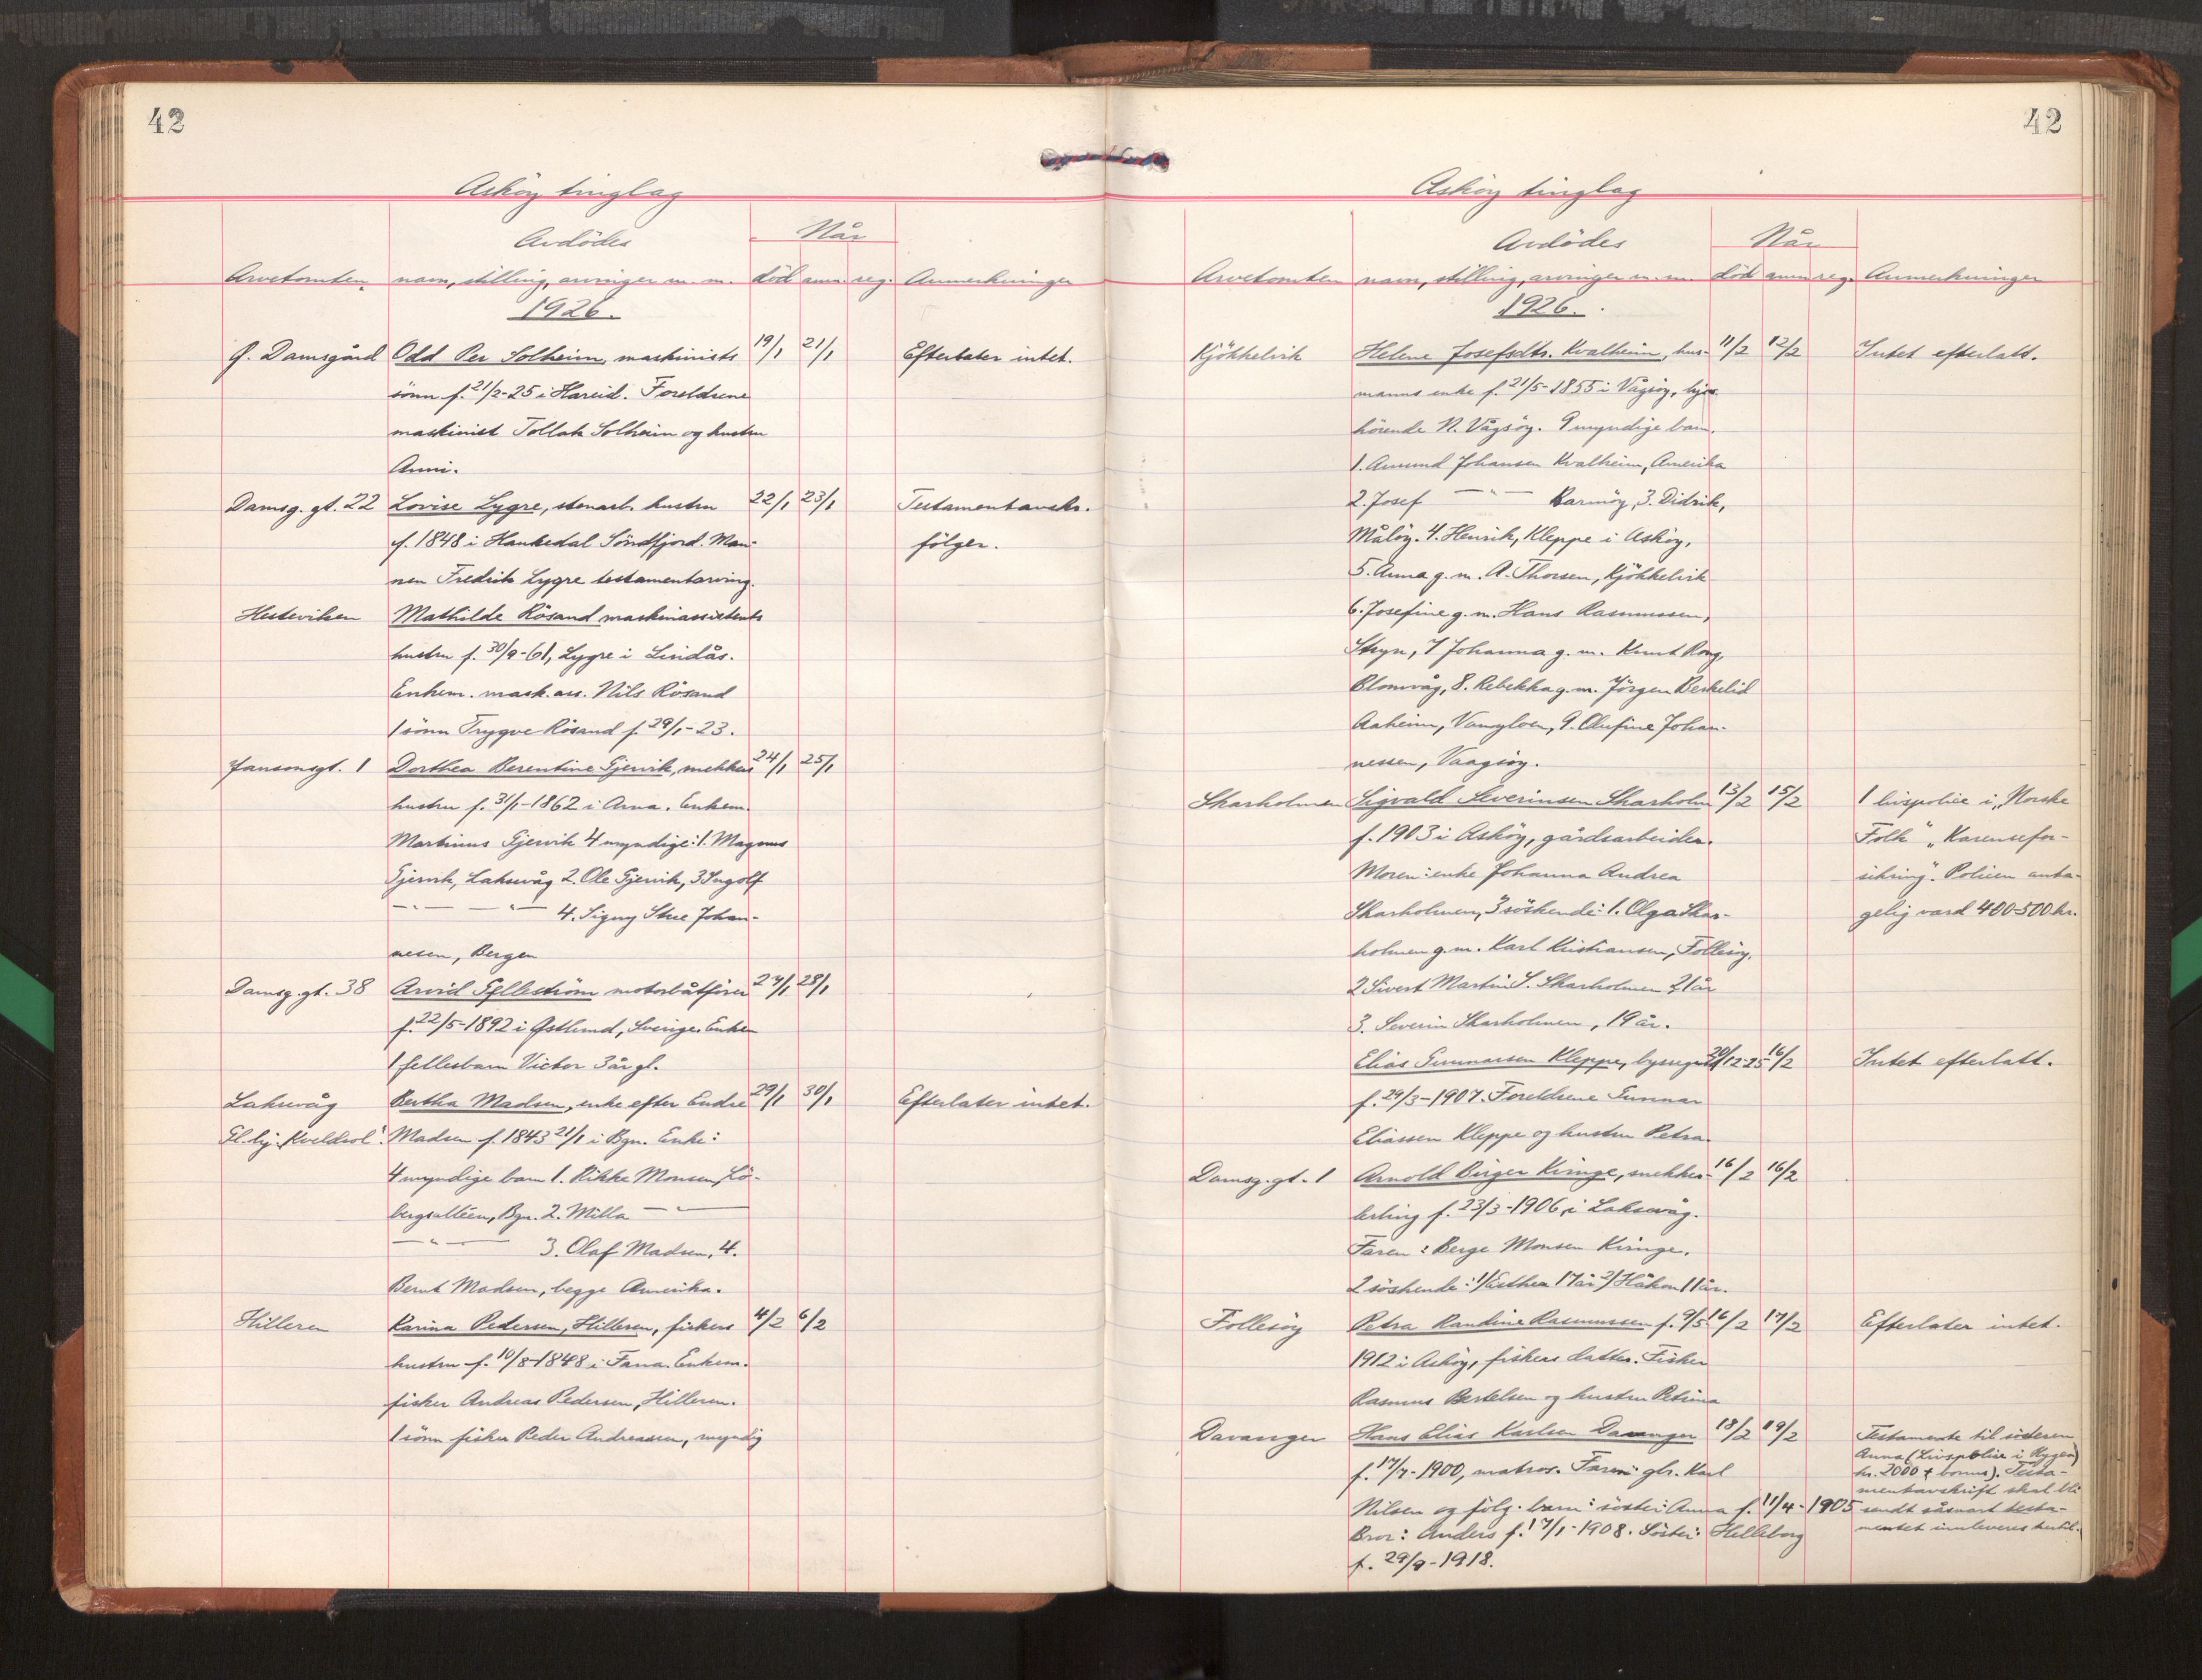 42
Askøy tinglag
Avdödes
Når
Arvetomten
navn, stilling, arvinger m. m.
död
anm.
reg.
Anmerkninger
1926.
G. Damsgård Odd Per Solheim, maskinists 19/1 21/1 Efterlater intet.
sönn f. 21/2-25 i Hareid. Foreldrene
maskinist Tollak Solheim og hustru
Anni.
Damsg. gt. 22 Lovise Lygre, stenarb. hustru 22/1 23/1 Testamentavskr.
f. 1848 i Haukedal Söndfjord. Man- følger.
nen Fredrik Lygre testamentarving.
Hesteviken Mathilde Rösand maskinassistents
hustru f. 30/9-61, Lygre i Lindås.
Enkem. mask. ass. Nils Rösand
1 sönn Trygve Rösand f. 29/1-23.
Jansonsgt. 1 Dorthea Berentine Gjervik, snekkers 24/1 25/1
hustru f. 31/1-1862 i Arna. Enkem.
Martinus Gjervik 4 myndige: 1. Magnus
Gjervik, Laksevåg 2. Ole Gjervik, 3 Ingolf
— " — — " — 4. Signy Stue Johan-
nesen, Bergen
Damsg. gt. 38 Arvid Gylleström motorbåtförer 27/1 28/1
f. 22/5-1892 i Østlund, Sverige. Enken
1 fellesbarn Victor 3 år gl.
Laksevåg Bertha Madsen, enke efter Endre 29/1 30/1 Efterlater intet.
Gl. hj. "Kveldsol". Madsen f. 1843 21/1 i Bgn. Enke:
4 myndige barn 1. Rikke Monsen, Lö-
bergsalleen, Bgn. 2. Milla — " —
— " — 3. Olaf Madsen, 4.
Bernt Madsen, begge Amerika.
Hilleren Karina Pedersen, Hilleren, fiskers 4/2 6/2
hustru f. 10/8-1848 i Fana. Enkem.
fisker Andreas Pedersen, Hilleren.
1 sönn fisker Peder Andreassen, myndig
42
Askøy tinglag
Avdödes
Når
Arvetomten
navn, stilling, arvinger m. m.
död
anm
reg.
Anmerkninger
1926.
Kjökkelvik Helene Josefsdtr. Kvalheim, hus- 11/2 12/2 Intet efterlatt.
manns enke f. 21/5-1855 i Vågsöy, hjem-
hörende N. Vågsöy. 9 myndige barn.
1. Amund Johansen Kvalheim, Amerika
2. Josef — " — Karmöy, 3. Didrik,
Målöy. 4. Henrik, Kleppe i Asköy,
5. Anna g. m. A. Thorsen, Kjökkelvik
6. Josefine g. m. Hans Rasmussen,
Stryn, 7 Johanna g. m. Knut Rong,
Blomvåg, 8. Rebekka g. m. Jörgen Berkelid
Aaheim, Vangloen, 9. Olufine Johan-
nessen, Vaagsöy.
Skarholmen Sigvald Severinsen Skarholm 13/2 15/2 1 livspolice i "Norske
f. 1903 i Asköy, gårdsarbeider. Folk" "Karensefor-
Moren: enke Johanna Andrea sikring". Policen anta-
Skarholmen, 3 söskende: 1. Olga Skar- gelig værd 400-500 kr.
holmen g. m. Karl Kristiansen, Follesöy,
2 Sivert Martin S. Skarholmen 21 år
3. Severin Skarholmen, 19 år.
Elias Gunnarsen Kleppe, byssegutt 20/12-25 16/2 Intet efterlatt.
f. 29/3-1907. Foreldrene Gunnar
Eliassen Kleppe og hustru Petra.
Damsg. gt. 1 Arnold Birger Kvinge, snekker- 16/2 16/2
lærling f. 23/3-1906, i Laksevåg.
Faren: Berge Monsen Kvinge.
2 söskende: 1/ Esther 17 år 2/ Håkon 11 år.
Follesöy Petra Randine Rasmussen f. 9/5 16/2 17/2 Efterlater intet.
1912 i Asköy, fiskers datter. Fisker
Rasmus Bertelsen og hustru Petrina
Davanger Hans Elias Karlsen Davanger 18/2 19/2 Testamente til söstren
Anna (Livspolice i Hygea)
f. 17/7-1900, matros. Faren: gbr. Karl kr. 2000 + bonus). Testa-
mentavskrift skal bli
Nilsen og fölg. barn: söster: Anna f. 11/4-1905 sendt såsnart testa-
Bror: Anders f. 17/1-1908. Söster: Helleborg mentet innleveres hertil.
f. 29/9-1918.